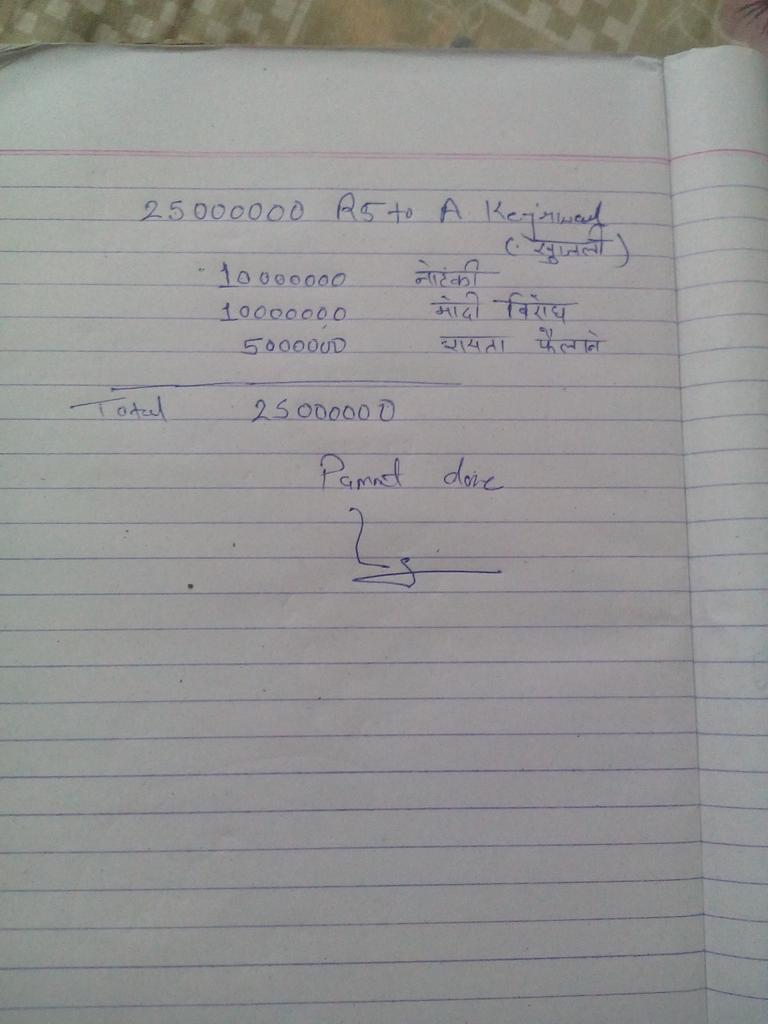 25000000 RS to A Kejriwal
(खुजली)
10000000 नोटंकी
10000000 मोदी विरोध
5000000 रायता फैलाने
Total 25000000
done